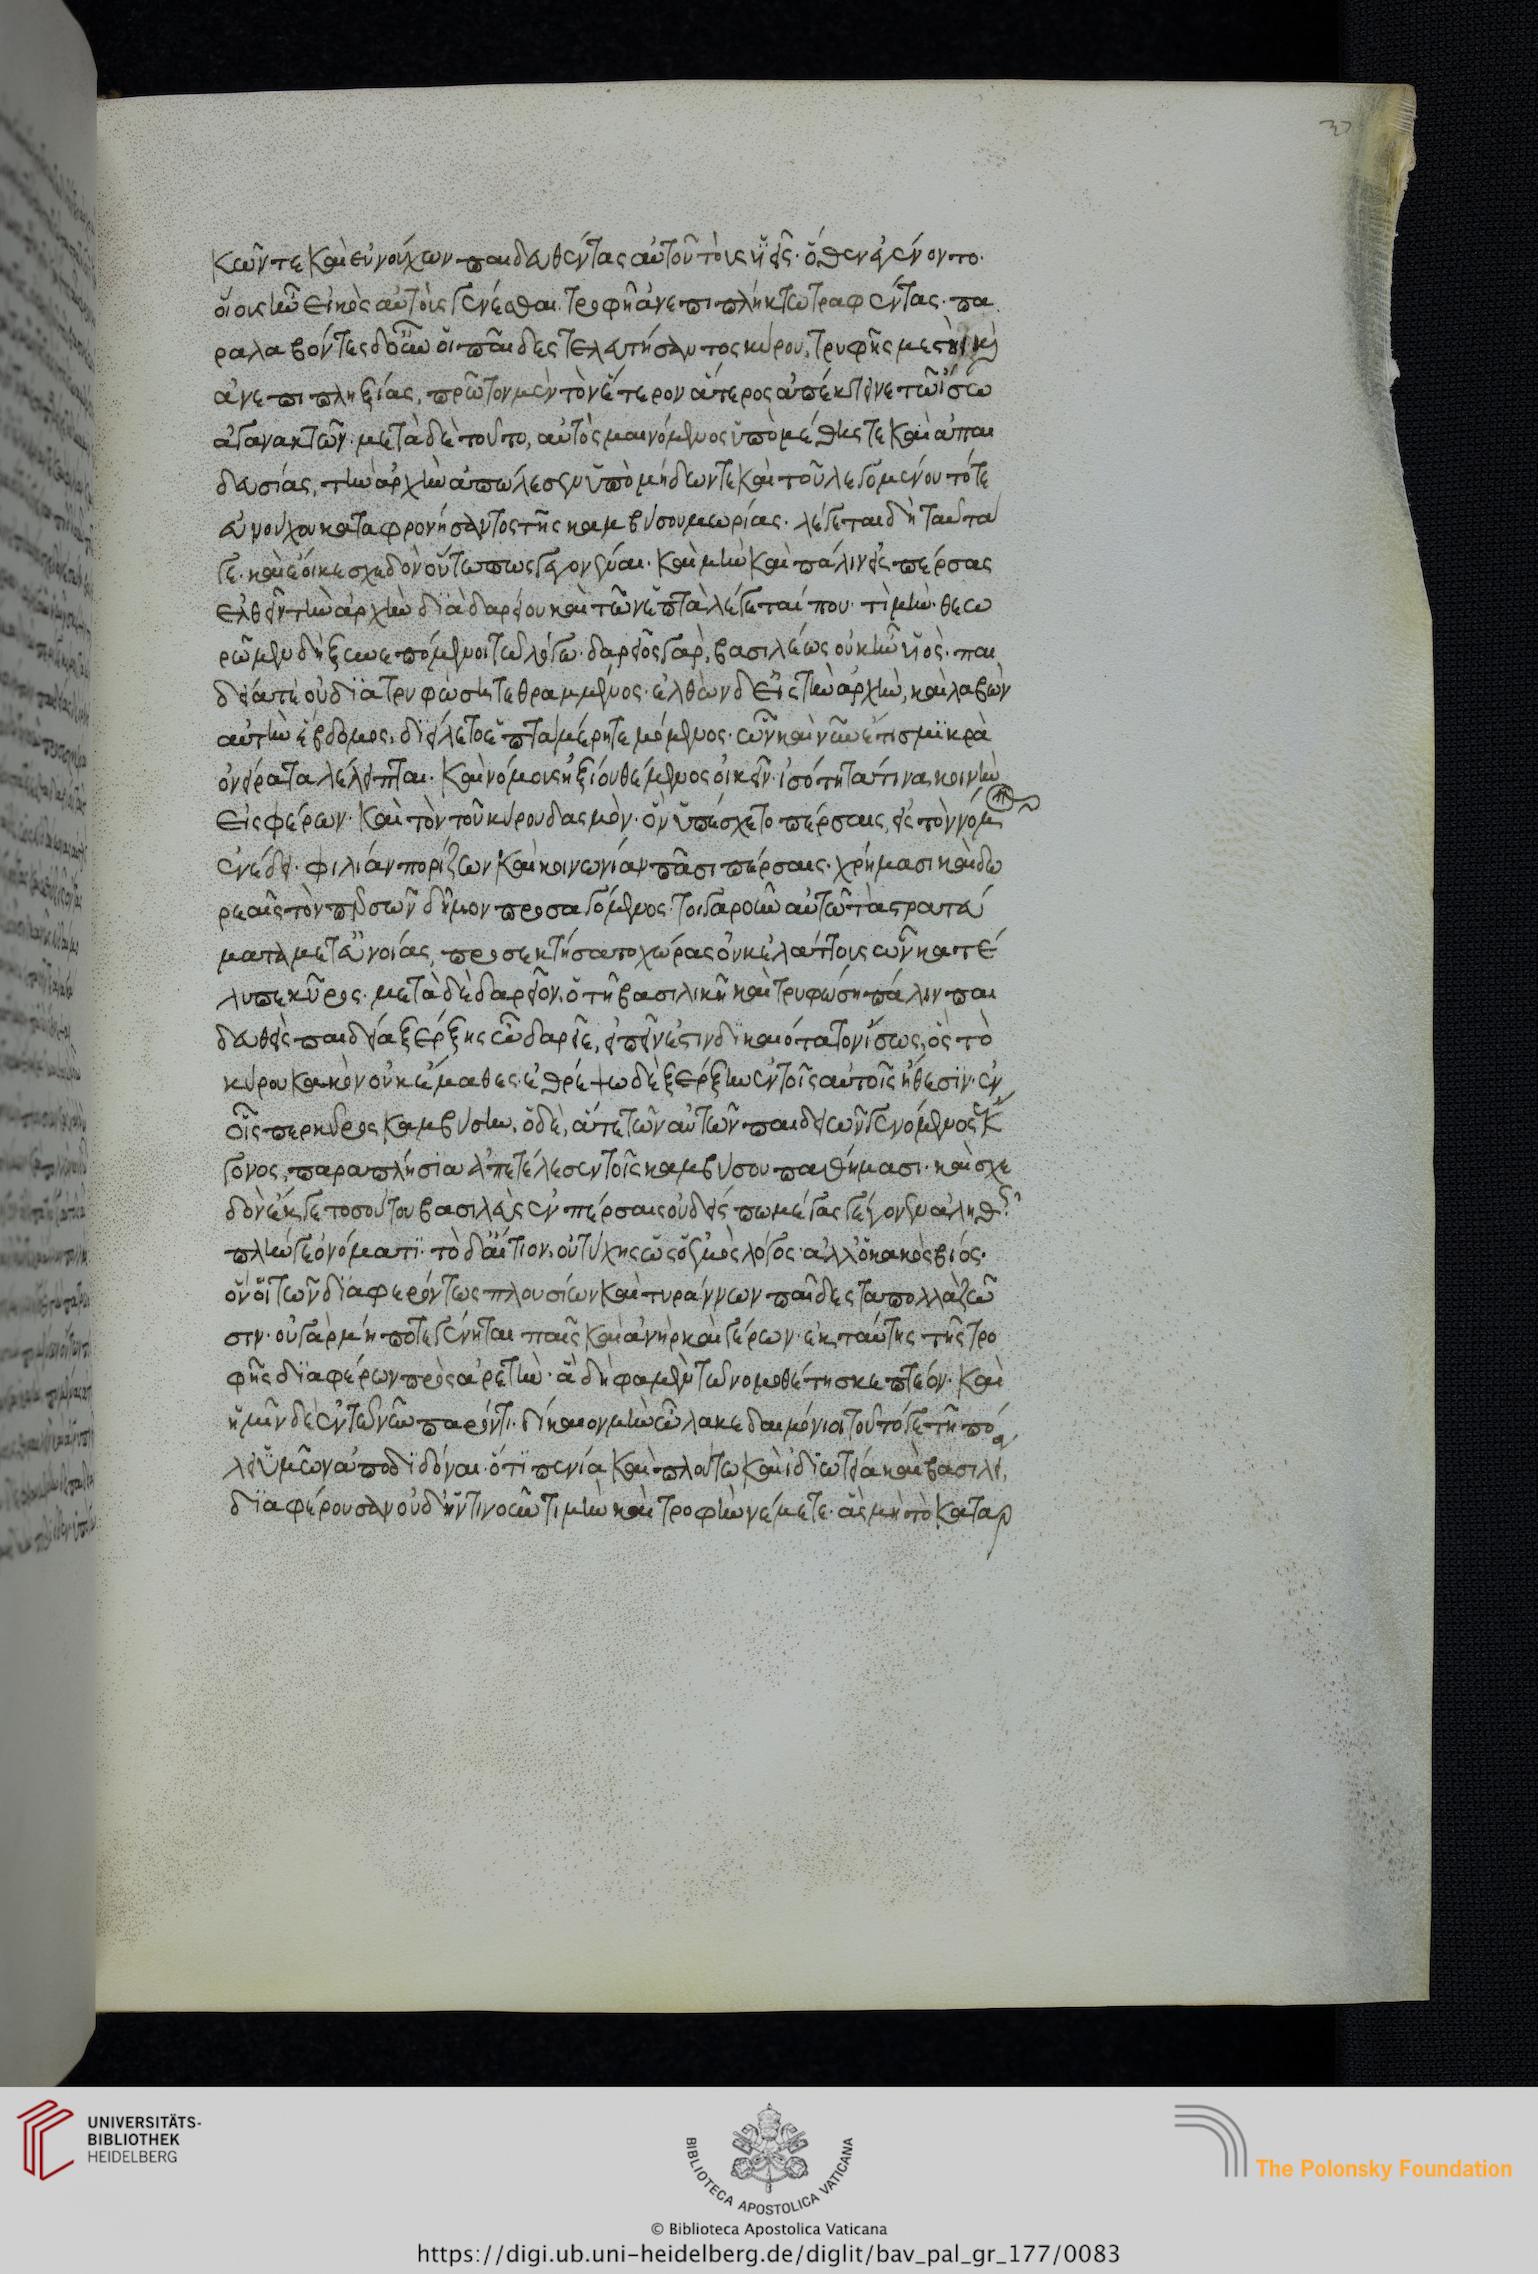 κῶν τε καὶ εὐνούχων παιδευθέντας αὐτοῦ τοὺς ὑεῖς· ὅθεν ἐγένοντο
οἵους ἦν εἰκὸς αὐτοὺς γενέσθαι τροφῆ ἀνεπιπλήκτω τραφέντας· πα
ραλαβόντες δ' οὖν οἱ παῖδες τελευτήσαντος κύρου, τρυφῆς μεστοὶ καὶ
ἀνεπιπληξίας, πρῶτον μὲν τὸν ἕτερον ἅτερος ἀπέκτεινε τῶ ἴσω
ἀγανακτῶν· μετὰ δὲ τοῦτο, αὐτὸς μαινόμενος ὑπὸ μέθης τε καὶ ἀπαι
δευσίας, τὴν ἀρχὴν ἀπώλεσεν ὑπὸ μήδων τε καὶ τοῦ λεγομένου τότε
εὐνούχου καταφρονήσαντος τῆς καμβύσου μωρίας· λέγεται δὴ ταῦτά
γε· καὶ ἔοικε σχεδὸν οὕτω πως γεγονέναι· καὶ μὴν καὶ πάλιν εἰς πέρσας
ἐλθεῖν τὴν ἀρχὴν διὰ δαρείου καὶ τῶν ἑπτὰ λέγεταί που· τί μήν· θεω
ρῶμεν δὴ ξυνεπόμενοι τῶ λόγω· δαρεῖος γὰρ, βασιλέως οὐκ ἦν ὑός· παι
δεία τε οὐ διατρυφώση τεθραμμένος· ἐλθὼν δ' εἰς τὴν ἀρχὴν, καὶ λαβὼν
αὐτὴν ἕβδομος, διείλετο ἑπτὰ μέρη τεμόμενος· ὧν καὶ νῦν ἔτι σμικρὰ
ὀνείρατα λέλειπται· καὶ νόμους ἠξίου θέμενος οἰκεῖν· ἰσότητά τινα κοινὴν
εἰσφέρων· καὶ τὸν τοῦ κύρου δασμὸν· ὃν ὑπέσχετο πέρσαις, εἰς τὸν νόμον
ἐνέδει· φιλίαν πορίζων καὶ κοινωνίαν πᾶσι πέρσαις· χρήμασι καὶ δω
ρεαῖς τὸν περσῶν δῆμον προσαγόμενος· τοιγαροῦν αὐτῶ τὰ στρατεύ
ματα μετ' εὐνοίας, προσεκτήσατο χώρας οὐκ ἐλάττους ὧν κατέ
λιπε κῦρος· μετὰ δὲ δαρεῖον, ὁ τῆ βασιλικῆ καὶ τρυφώση πάλιν παι
δευθεὶς παιδεία ξέρξης ὦ δαρεῖε, εἰπεῖν ἐστὶν δικαιότατον ἴσως, ὃς τὸ
κύρου κακὸν οὐκ ἔμαθες· ἐθρέψω δὲ ξέρξην ἐν τοῖς αὐτοῖς ἤθεσιν· ἐν
οἷσπερ κῦρος καμβύσην· ὁ δὲ, ἅτε τῶν αὐτῶν παιδειῶν γενόμενος ἔκ
γονος, παραπλήσια ἀπετέλεσεν τοῖς καμβύσου παθήμασι· καὶ σχε
δὸν ἔκ γε τοσούτου βασιλεὺς ἐν πέρσαις οὐδείς πω μέγας γέγονεν ἀληθῶς
πλήν γε ὀνόματι· τὸ δ' αἴτιον, οὐ τύχης ὡς ὁ ἐμὸς λόγος· ἀλλ' ὁ κακὸς βίος·
ὃν οἱ τῶν διαφερόντως πλουσίων καὶ τυράννων παῖδες τὰ πολλὰ ζῶ
σιν· οὐ γὰρ μή ποτε γένηται παῖς καὶ ἀνὴρ καὶ γέρων· ἐκ ταύτης τῆς τρο
φῆς διαφέρων πρὸς ἀρετήν· ἃ δή φαμεν τῶ νομοθέτη σκεπτέον· καὶ
ἡμῖν δὲ ἐν τῶ νῦν παρόντι· δίκαιον μὴν ὦ λακεδαιμόνιοι τοῦτό γε τῆ πό
λει ὑμῶν ἀποδιδόναι· ὅτι πενία καὶ πλούτω καὶ ἰδιωτεία καὶ βασιλεία
διαφέρουσαν οὐδ' ἥντινοῦν τιμὴν καὶ τροφὴν νέμετε· ἃς μὴ τὸ κατ' ἀρ